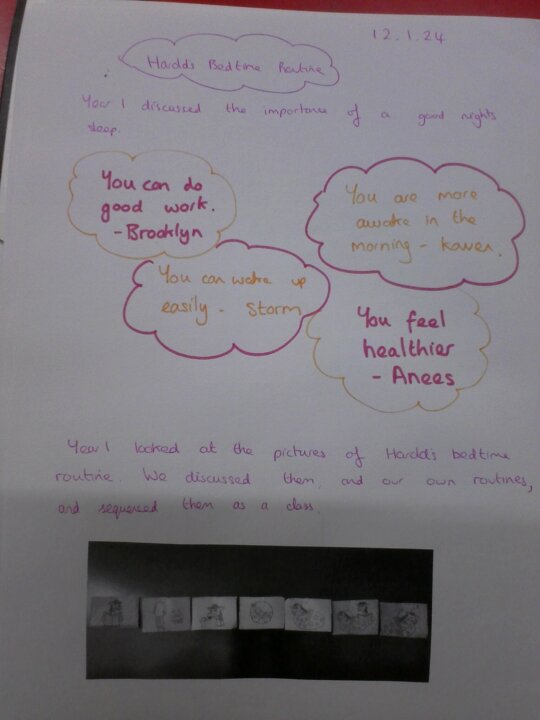 12.1.24
Harold's Bedtime Routine
Year 1 discussed the importance of a good nights
sleep.
You can do
good work.
- Brooklyn
You are more
awake in the
morning - Kaven.
You can wake up
easily - Storm
You feel
healthier
- Anees
Year 1 looked at the pictures of Harold's bedtime
routine. We discussed them, and our own routines,
and sequenced them as a class.